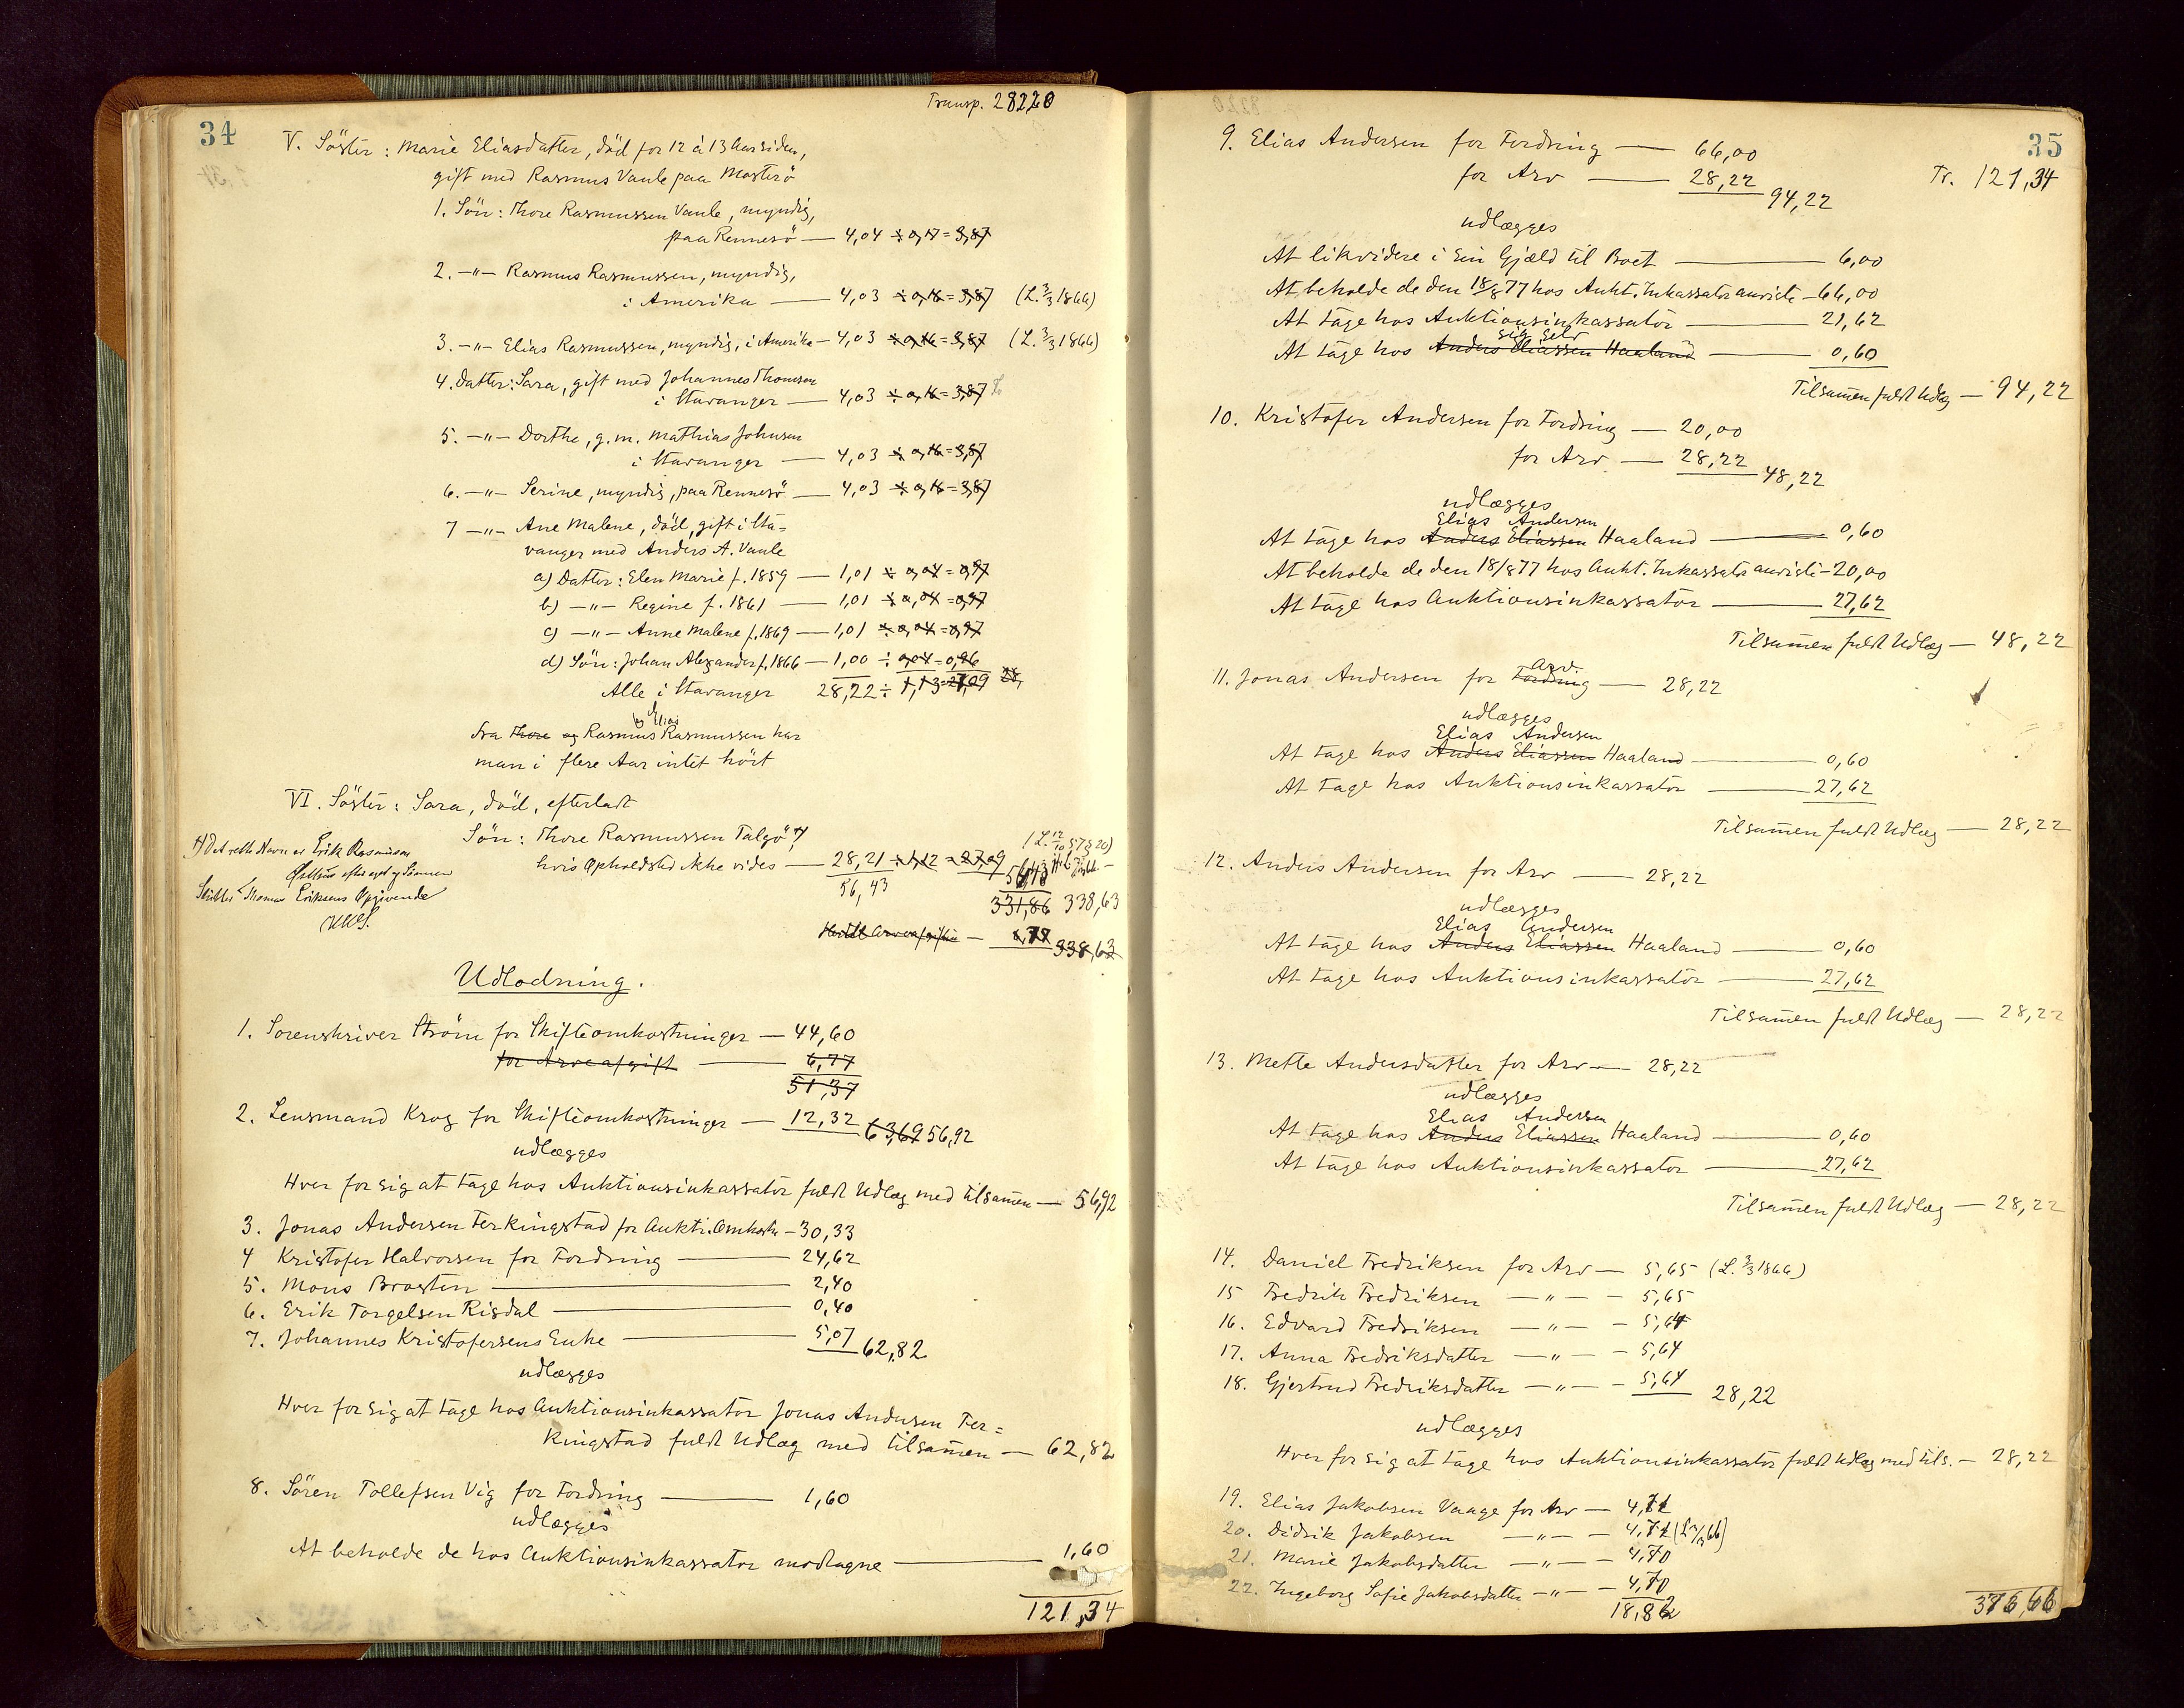 Transp. 282,20
34
V. Söster: Marie Eliasdatter, död for 12 à 13 Aar siden,
gift med Rasmus Vaule paa Mosterö
1. Sön: Thore Rasmussen Vaule, myndig,
paa Rennesö — 4,04 ÷ 0,17 = 3,87
2. —"— Rasmus Rasmussen, myndig,
i Amerika — 4,03 ÷ 0,16 = 3,87 (L. 3/3 1866)
3. —"— Elias Rasmussen, myndig, i Amerika — 4,03 ÷ 0,16 = 3,87 (L. 3/3 1866)
4. Datter: Sara, gift med Johannes Thomsen
i Stavanger — 4,03 ÷ 0,16 = 3,87
5. —"— Dorthe, g. m. Mathias Johnsen
i Stavanger — 4,03 ÷ 0,16 = 3,87
6. —"— Serine, myndig, paa Rennesö — 4,03 ÷ 0,16 = 3,87
7 —"— Ane Malene, död, gift i Sta=
vanger med Anders A. Vaule
a) Datter: Elen Marie f. 1859 — 1,01 ÷ 0,04 = 0,97
b) —"— Regine f. 1861 — 1,01 ÷ 0,04 = 0,97
c) —"— Anne Malene f. 1869 — 1,01 ÷ 0,04 = 0,97
d) Sön: Johan Alexander f. 1866 — 1,00 ÷ 0,04 = 0,96
Alle i Stavanger 28,22 ÷ 1,13 = 27,09
og Elias
Fra Thore og Rasmus Rasmussen har
man i flere Aar intet hört
VI. Söster: Sara, död, efterladt
Sön: Thore Rasmussen Talgö
(L. 12/10 57 § 20)
hvis Opholdsted ikke vides — 28,21 ÷ 1,12 = 27,09
56,43
56,43
331,86 338,63
Det rette Navn er Erik Rasmussen
Thomas Eriksens Opgivende
Arveafgiften — 6,77 338,63
Udlodning.
1. Sorenskriver Ström for Skifteomkostninger — 44,60
for Arveafgift — 6,77
51,37
2. Lensmand Krog for Skifteomkostninger — 12,32 63,69 56,92
udlægges
Hver for sig at tage hos Auktionsinkassator fuldt Udlæg med tilsamen — 56,92
3. Jonas Andersen Terkingstad for Aukti. Omkostn — 30,33
4 Kristofer Halvorsen for Fordring — 24,62
5. Mons Brosten — 2,40
6. Erik Torgelsen Risdal — 0,40
7. Johannes Kristofersens Enke — 5,07 62,82
udlægges
Hver for sig at tage hos Auktionsinkassator Jonas Andersen Ter=
kingstad fuldt Udlæg med tilsamen — 62,82
8. Sören Tollefsen Vig for Fordring — 1,60
udlægges
At beholde de hos Auktionsinkassator modtagne — 1,60
121,34
35
9. Elias Andersen for Fordring — 66,00
Tr. 121,34
for Arv — 28,22 94,22
udlægges
At likvidere i Ein Gjæld til Boet — 6,00
At beholde de den 18/8 77 hos Aukt. Inkassator anviste — 66,00
At tage hos Auktionsinkassator — 21,62
sig selv
At tage hos Anders Eliassen Haaland — 0,60
Tilsamen fuldt Udlæg — 94,22
10. Kristofer Andersen for Fordring — 20,00
for Arv — 28,22 48,22
udlægges
Elias Andersen
At tage hos Anders Eliassen Haaland — 0,60
At beholde de den 18/8 77 hos Aukt. Inkassator anviste — 20,00
At tage hos Auktionsinkassator — 27,62
Tilsamen fuldt Udlæg — 48,22
Arv.
11. Jonas Andersen for Fordring — 28,22
udlægges
Elias Andersen
At tage hos Anders Eliassen Haaland — 0,60
At tage hos Auktionsinkassator — 27,62
Tilsamen fuldt Udlæg — 28,22
12. Anders Andersen for Arv — 28,22
udlægges
Elias Andersen
At tage hos Anders Eliassen Haaland — 0,60
At tage hos Auktionsinkassator — 27,62
Tilsamen fuldt Udlæg — 28,22
13. Mette Andersdatter for Arv — 28,22
udlægges
Elias Andersen
At tage hos Anders Eliassen Haaland — 0,60
At tage hos Auktionsinkassator — 27,62
Tilsamen fuldt Udlæg — 28,22
14. Daniel Fredriksen for Arv — 5,65 (L. 3/3 1866)
15 Fredrik Fredriksen —"— — 5,65
16. Edvard Fredriksen —"— — 5,64
17. Anna Fredriksdatter —"— — 5,64
18. Gjertrud Fredriksdatter —"— — 5,64 28,22
udlægges
Hver for sig at tage hos Auktionsinkassator fuldt Udlæg med tils. — 28,22
19. Elias Jakobsen Vaage for Arv — 4,71
20. Didrik Jakobsen —"— — 4,71 (L 3/3 66)
21. Marie Jakobsdatter —"— — 4,70
22. Ingeborg Sofie Jakobsdatter —"— — 4,70
18,82
376,66